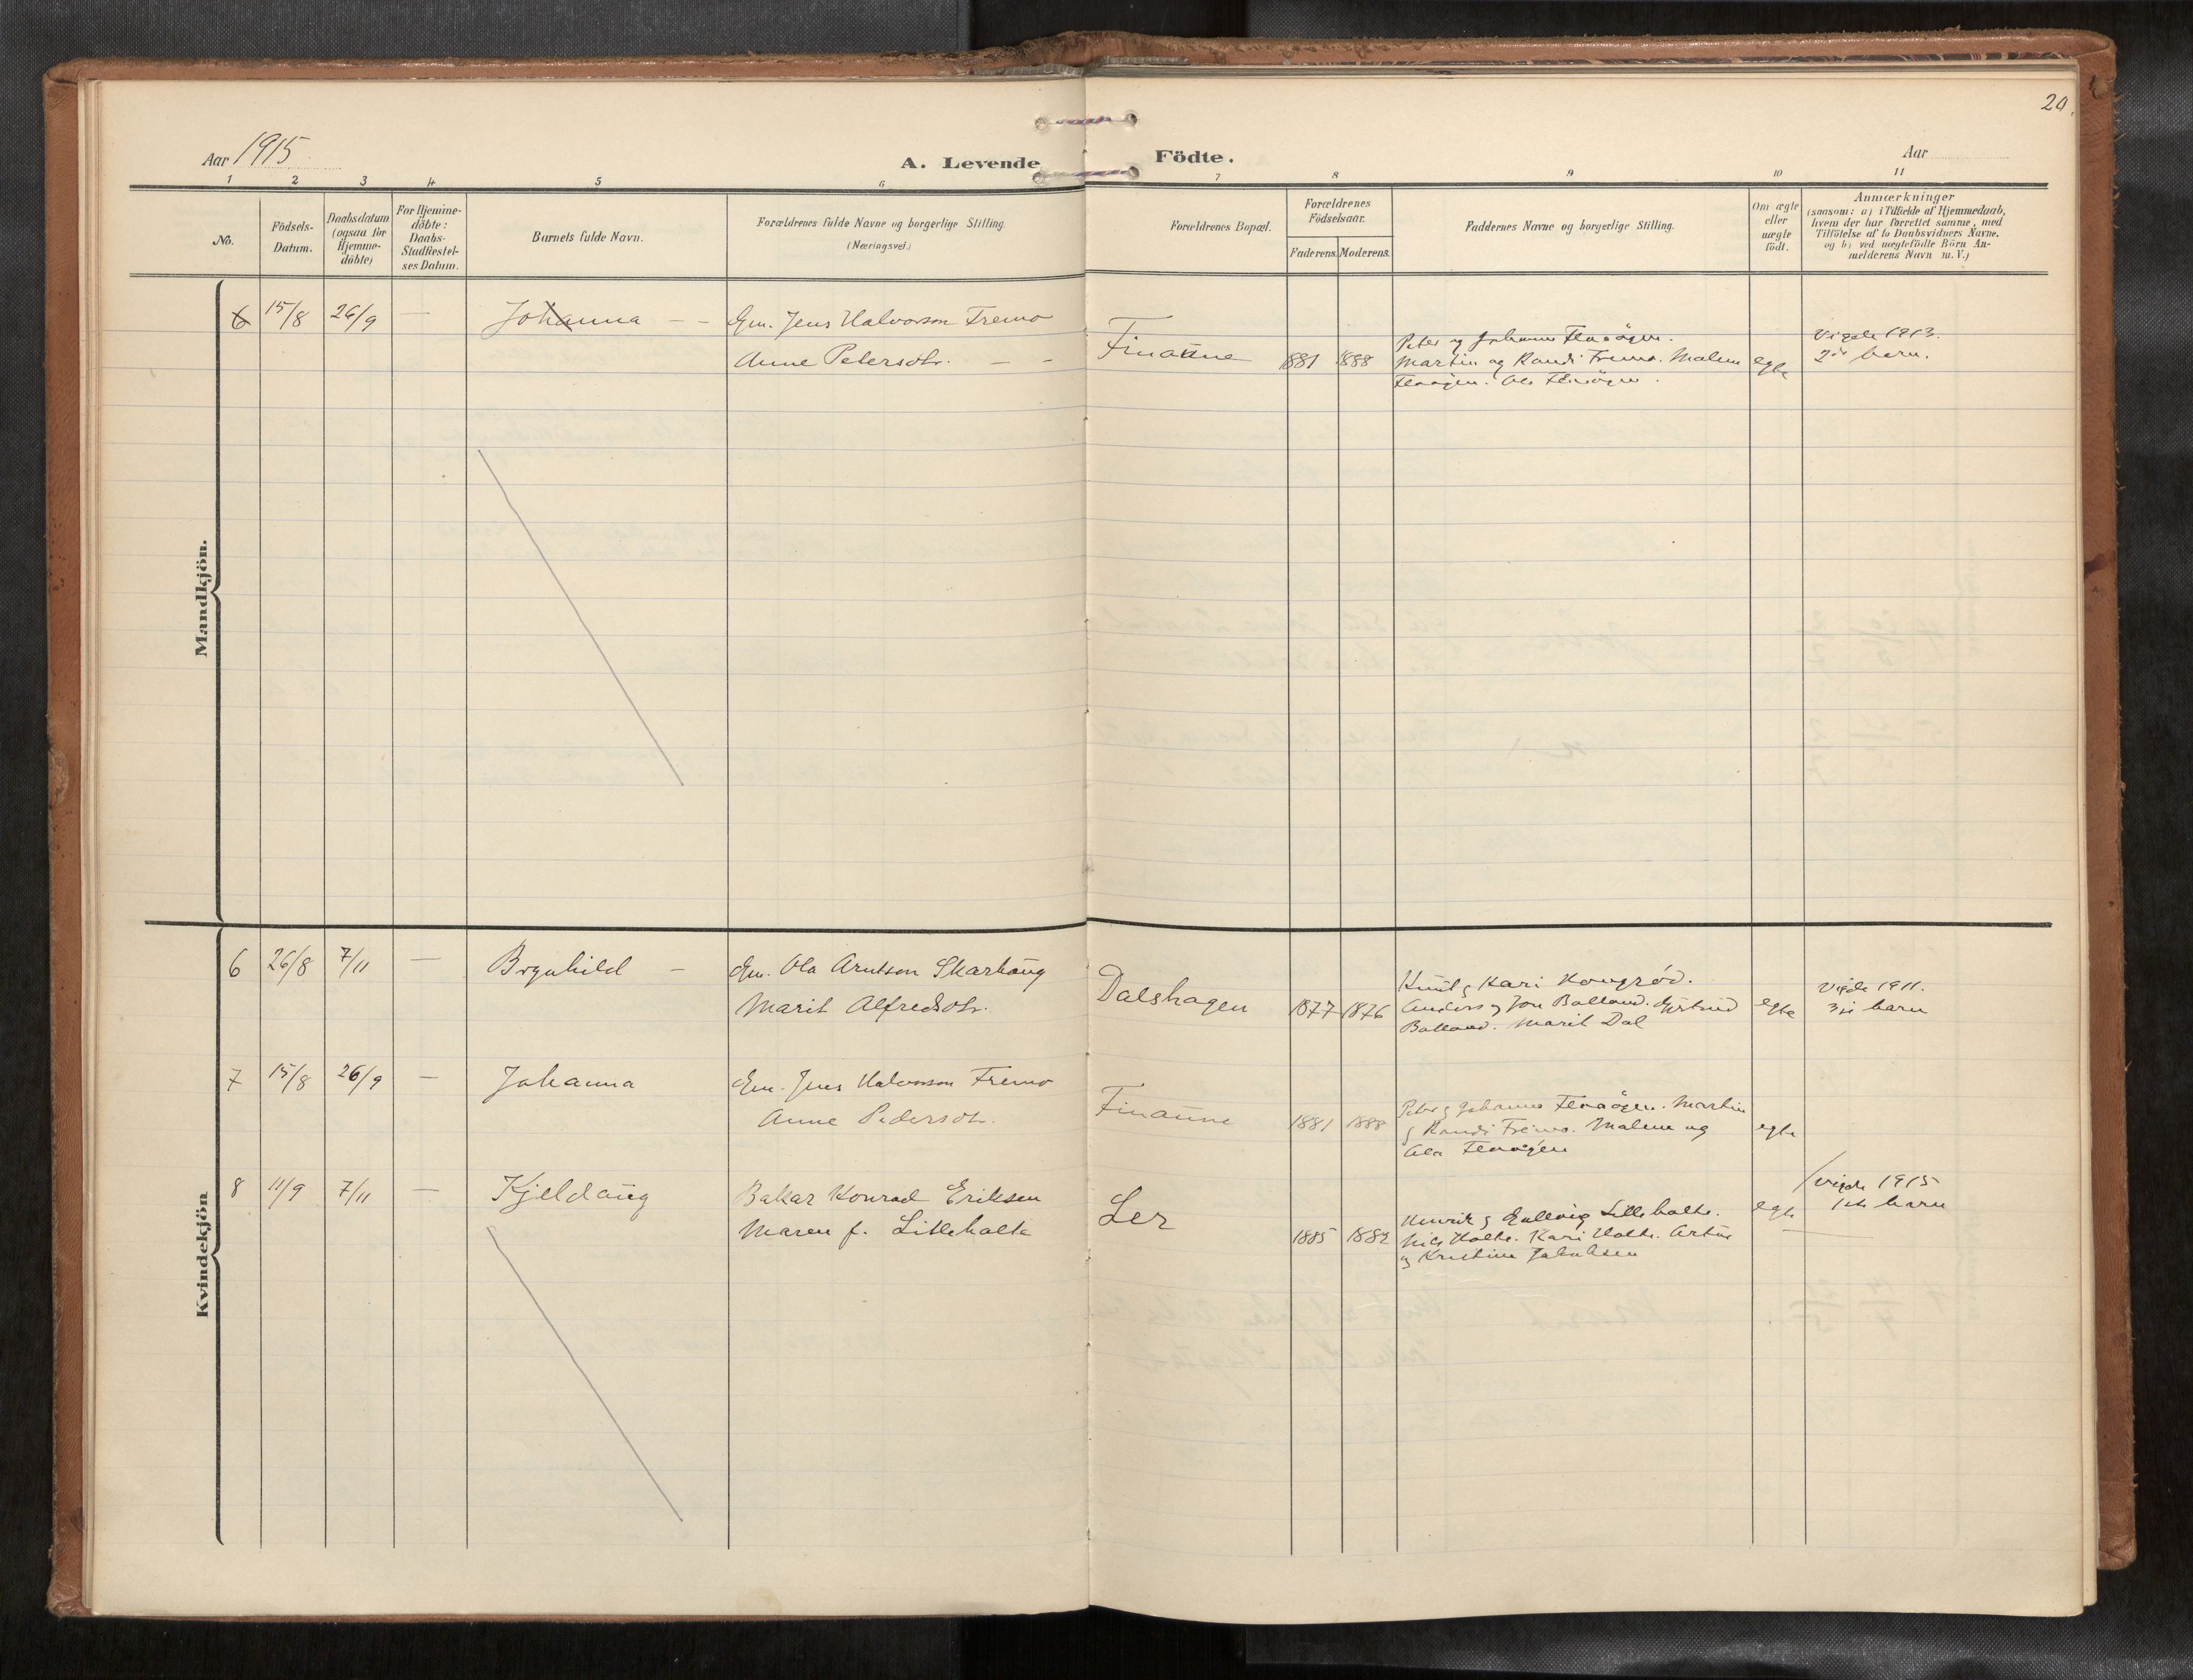 20.
Aar 1915
A. Levende Födte.
Aar
1 2 3 4 5 6 7 8 9 10 11
No.
Födsels-
Datum.
Daabsdatum
(ogsaa for
Hjemme-
döbte)
For Hjemme-
döbte:
Daabs-
Stadfestel-
ses Datum.
Barnets fulde Navn.
Forældrenes fulde Navne og borgerlige Stilling.
(Næringsvei.)
Forældrenes Bopæl.
Forældrenes
Födselsaar.
Faderens. Moderens.
Faddernes Navne og borgerlige Stilling.
Om ægte
eller
uægte
födt.
Anmærkninger
(saasom: a) i Tilfælde af Hjemmedaab,
hvem der har forrettet samme, med
Tilföielse af to Daabsvidners Navne,
og b) ved uægtefödte Börn An-
melderens Navn m. V.)
Mandkjön.
6 15/8 26/9 — Johanna — — Gm. Jens Halvorsen Fremo
Anne Petersdtr. — —
Finanne 1881 1888
Peter og Johanna Flaaögen.
Martin og Randi Fremo. Malene
Flaaögen. Ola Flaaögen.
egte
Vigde 1913.
2det barn.
Kvindekjön
6 26/8 7/11 — Brynhild — Gm. Ola Arntson Skarhaug
Marit Alfredsdtr.
Dalshagen 1877 1876
Knut og Kari Kongsrød.
Anders og Jon Balland. Gjertrud
Balland. Marit Dal
egte
Vigde 1911.
3je barn
7 15/8 26/9 — Johanna Gm. Jens Halvorson Fremo
Anne Pedersdtr.
Finanne 1881 1888
Peter og Johanna Flaaögen. Martin
og Randi Fremo. Malene og
Ola Flaaögen
egte
8 11/9 7/11 — Kjeldaug Bakar Konrad Eriksen
Maren f. Litleholte
Ler 1885 1882
Henrik og Litleholte.
Nils Holte. Kari Holte. Artur
og Kristine Jakobsen
egte
—
vigde 1915
1ste barn